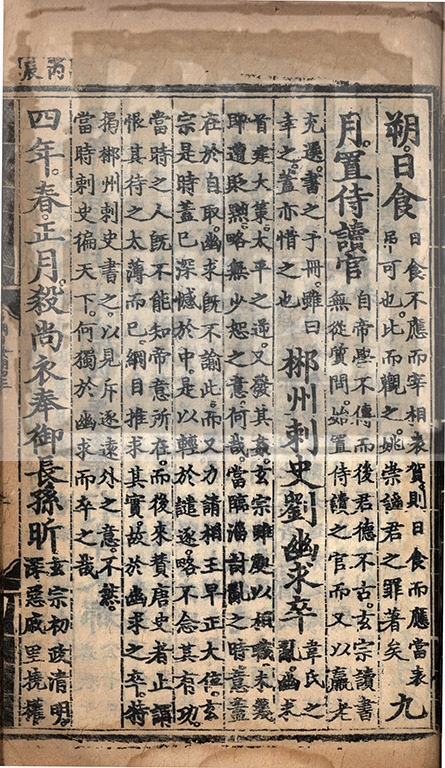 丙辰
朔。日食
日食不應而宰相表賀。則日食而應當表
吊可也。此而觀之。姚崇謟君之罪著矣
九
月。置侍讀官
自帝學不傳。而後君德不古。玄宗讀書
無從質問。始置侍讀之官。而又以羸老
充選。書之于冊。雖曰
幸之。蓋亦惜之也
郴州刺史劉幽求卒
韋氏之
亂。幽求
首建大策。太平之譖。又發其姦。玄宗雖處以相職。未幾
即遭貶黜。略無少恕之意。何哉。當臨淄討亂之時。意蓋
在於自取。幽求既不諭此。而又力請相王早正大位。玄
宗是時蓋已深憾於中。是以輕於譴逐。略不念其有功。
當時之人。既不能知帝意所在。而後來賛唐史者止謂
恨其待之太薄而已。綱目推求其實。故於幽求之卒。特
揭郴州刺史書之。以見斥逐遠外之意。不然
當時刺史徧天下。何獨於幽求而卒之哉
四年。春。正月。殺尚衣奉御長孫昕
玄宗初政清明。
深惡戚里撓權